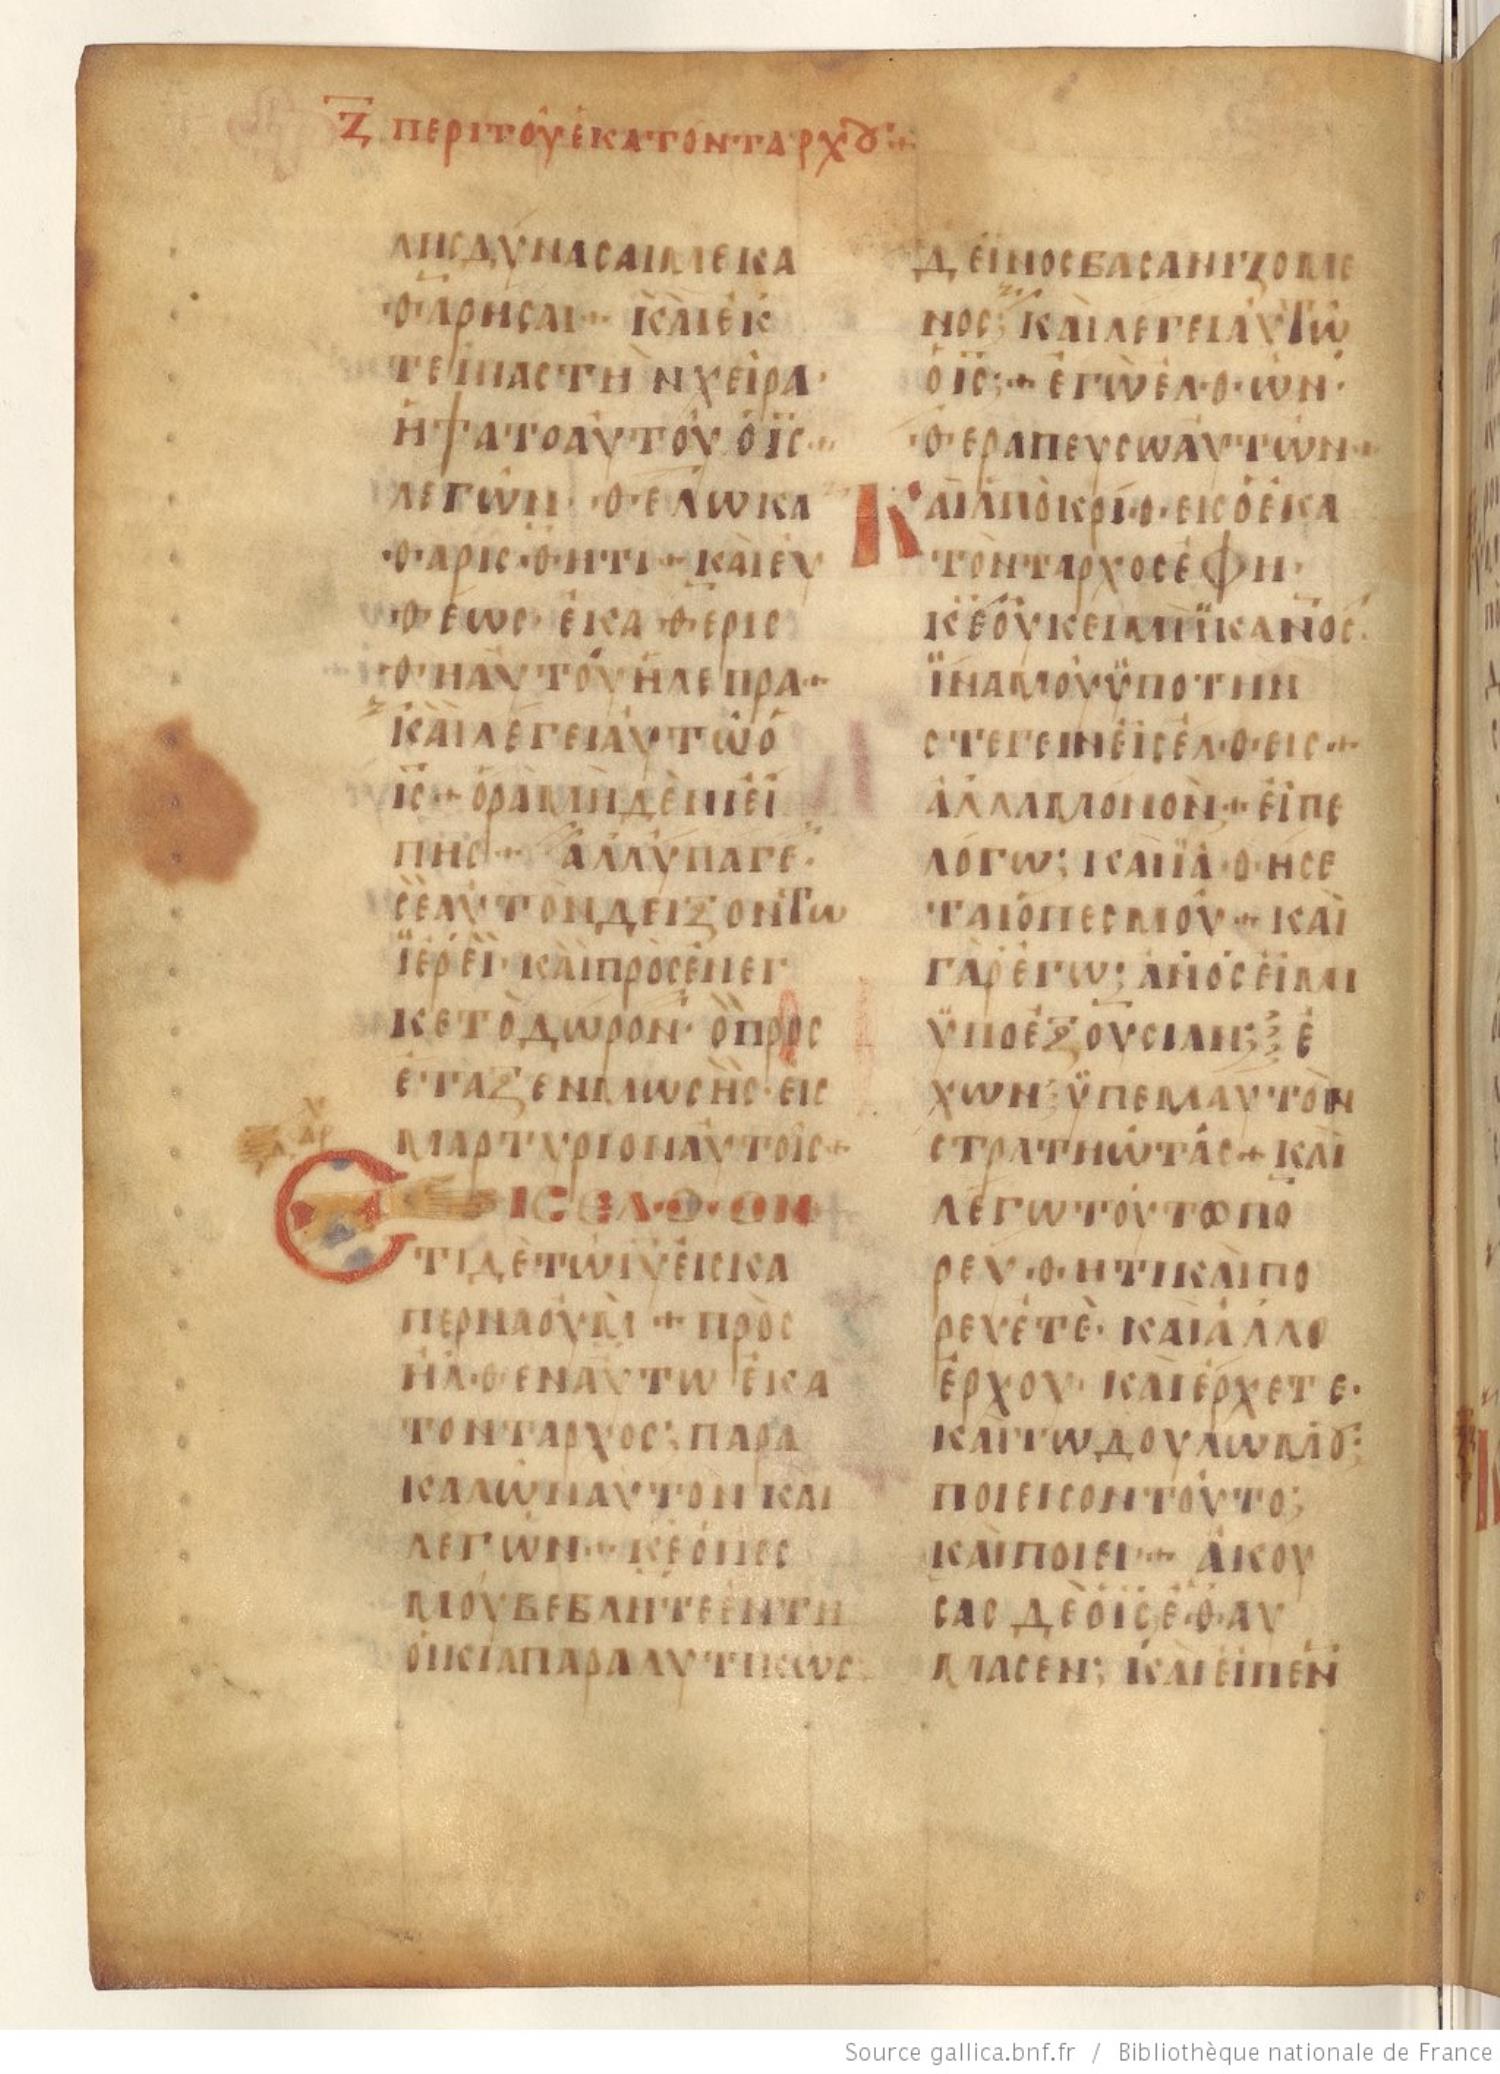 Ζ ΠΕΡΙ ΤΟΥ ΕΚΑΤΟΝΤΑΡΧȣ
ΛΗΣ ΔΥΝΑΣΑΙ ΜΕ ΚΑ
ΘΑΡΗΣΑΙ· ΚΑΙ ΕΚ
ΤΕΙΝΑΣ ΤΗΝ ΧΕΙΡΑ·
ΗΨΑΤΟ ΑΥΤΟΥ Ο ΙΣ·
ΛΕΓΩΝ· ΘΕΛΩ ΚΑ
ΘΑΡΙΣΘΗΤΙ + ΚΑΙ ΕΥ
ΘΕΩΣ ΕΚΑΘΕΡΙΣ
ΘΗ ΑΥΤΟΥ Η ΛΕΠΡΑ +
ΚΑΙ ΛΕΓΕΙ ΑΥΤΩ Ο
ΙΣ + ΟΡΑ ΜΗΔΕΝΙ ΕΙ
ΠΗΣ + ΑΛΛ ΥΠΑΓΕ·
ΣΕΑΥΤΟΝ ΔΕΙΞΟΝ ΤΩ
ΙΕΡΕΙ· ΚΑΙ ΠΡΟΣΕΝΕΓ
ΚΕ ΤΟ ΔΩΡΟΝ· Ο ΠΡΟΣ
ΕΤΑΞΕΝ ΜΩΣΗΣ· ΕΙΣ
ΜΑΡΤΥΡΙΟΝ ΑΥΤΟΙΣ +
ΕΙΣΕΛΘΟΝ
ΤΙ ΔΕ ΤΩ ΙΥ ΕΙΣ ΚΑ
ΠΕΡΝΑΟΥΜ + ΠΡΟΣ
ΗΛΘΕΝ ΑΥΤΩ ΕΚΑ
ΤΟΝΤΑΡΧΟΣ; ΠΑΡΑ
ΚΑΛΩΝ ΑΥΤΟΝ ΚΑΙ
ΛΕΓΩΝ + ΚΕ Ο ΠΕΣ
ΜΟΥ ΒΕΒΛΗΤΕ ΕΝ ΤΗ
ΟΙΚΙΑ ΠΑΡΑΛΥΤΗΚΩΣ
ΔΕΙΝΟΣ ΒΑΣΑΝΙΖΟΜΕ
ΝΟΣ; ΚΑΙ ΛΕΓΕΙ ΑΥΤΩ
Ο ΙΣ; + ΕΓΩ ΕΛΘΩΝ·
ΘΕΡΑΠΕΥΣΩ ΑΥΤΩΝ +
ΚΑΙ ΑΠΟΚΡΙΘΕΙΣ Ο ΕΚΑ
ΤΟΝΤΑΡΧΟΣ ΕΦΗ·
ΚΕ ΟΥΚ ΕΙΜΗ ΙΚΑΝΟΣ·
ΙΝΑ ΜΟΥ ΥΠΟ ΤΗΝ
ΣΤΕΓΕΙΝ ΕΙΣΕΛΘΕΙΣ +
ΑΛΛΑ ΜΟΝΟΝ + ΕΙΠΕ
ΛΟΓΩ; ΚΑΙ ΙΑΘΗΣΕ
ΤΑΙ Ο ΠΕΣ ΜΟΥ + ΚΑΙ
ΓΑΡ ΕΓΩ; ΑΝΟΣ ΕΙΜΙ
ΥΠΟ ΕΞΟΥΣΙΑΝ; Ε
ΧΩΝ; ΥΠ ΕΜΑΥΤΟΝ
ΣΤΡΑΤΗΩΤΑΣ + ΚΑΙ
ΛΕΓΩ ΤΟΥΤΩ ΠΟ
ΡΕΥΘΗΤΙ ΚΑΙ ΠΟ
ΡΕΥΕΤΕ· ΚΑΙ ΑΛΛΟ
ΕΡΧΟΥ· ΚΑΙ ΕΡΧΕΤΕ·
ΚΑΙ ΤΩ ΔΟΥΛΩ Μȣ;
ΠΟΙΕΙΣΟΝ ΤΟΥΤΟ;
ΚΑΙ ΠΟΙΕΙ + ΑΚΟΥ
ΣΑΣ ΔΕ Ο ΙΣ ΕΘΑΥ
ΜΑΣΕΝ; ΚΑΙ ΕΙΠΕΝ
Source gallica.bnf.fr / Bibliothèque nationale de France